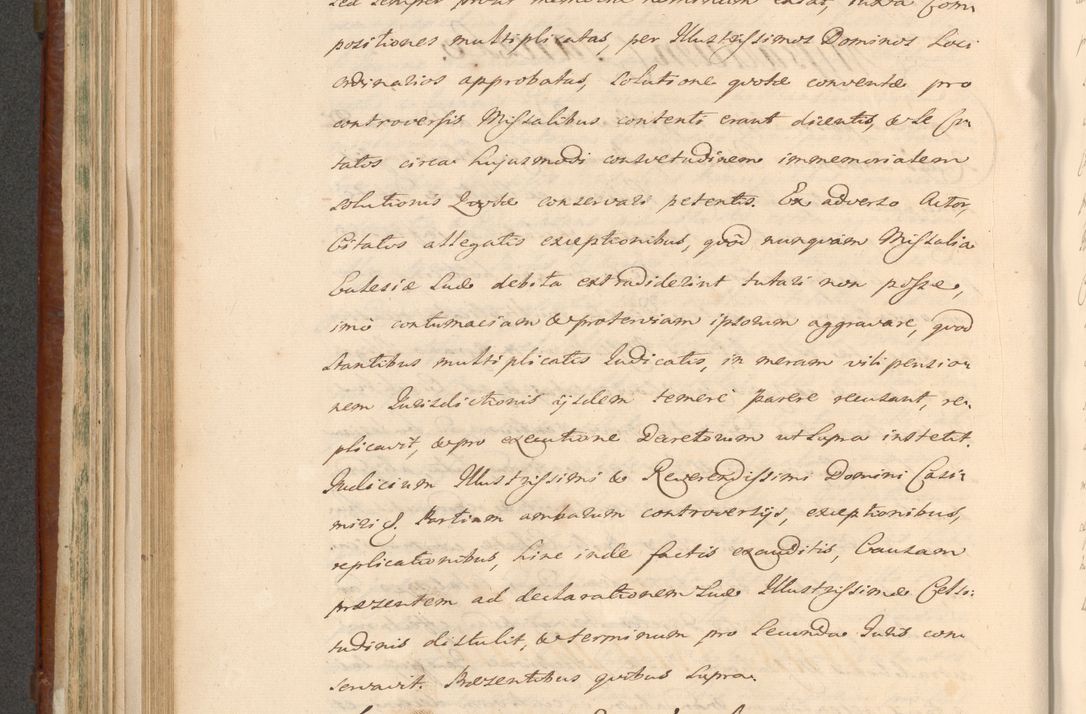 sed semper prout memoria hominum extat, iuxta Com
positiones multiplicatas, per Illustrissimos Dominos Loci
ordinarios approbatas, Solutione quotæ conventæ pro
controversis Missalibus contenti erant dicentis, & se Ci
tatos circa hujusmodi consvetudinem immemorialem
solutionis Quotæ conservari petentis. Ex adverso Actor,
Citatos allegatis exceptionibus, quòd nunquam Missalia
Eclesiæ Suæ debita extradiderint tutari non posse,
imò contumaciam & proterviam ipsorum aggravare, quod
stantibus multiplicatis Judicatis, in meram vilipensio-
nem Jurisdictionis ijsdem temerè parere recusant, re-
plicavit, & pro executione Decretorum ut supra institit.
Judicium Illustrissimi & Reverendissimi Domini Casi-
miri S. Partium ambarum controversijs, exceptionibus,
replicationibus, hinc inde factis exauditis, Causam
præsentem ad declarationem Suæ Illustrissimæ Celsi-
tudinis distulit, & terminum pro Secunda Juris con
servavit. Præsentibus quibus supra.